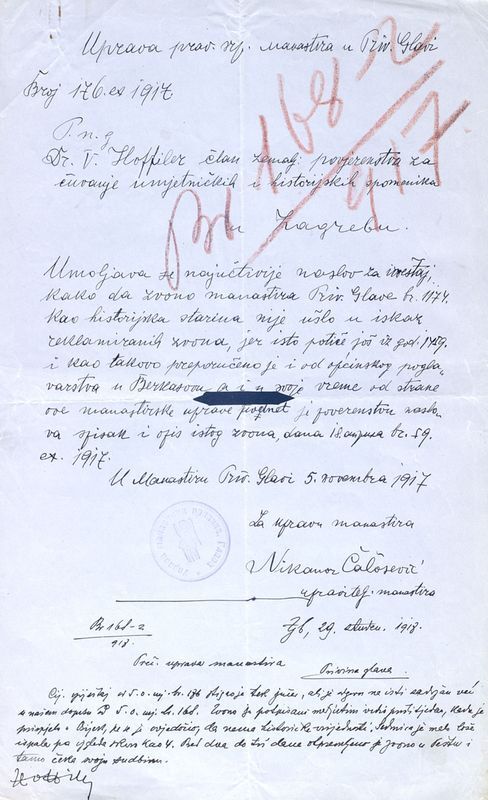 Uprava prav. srp. manastira u Priv. Glavi
Broj 176. ex 1917.
168-2
917.
P. n. g
Dr. V. Hoffiler član zemalj. povjerenstva za
čuvanje umjetničkih i historijskih spomenika
u Zagrebu.
Umoljava se najučtivije naslov za izvještaj,
kako da zvono manastira Priv. Glave br. 1174.
kao historijska starina nije ušlo u iskaz
reklamiranih zvona, jer isto potiče još iz god.
i kao takovo preporučeno je i od općinskog pogla-
varstva u Berkasovu a i u svoje vreme od strane
ove manastirske uprave podnet je poverenstvu naslo-
va spisak i opis istog zvona, dana 18. br. 59.
ex. 1917.
U Manastiru Priv. Glavi 5. novembra 1917
Za upravu manastira
Nikanor
upravitelj manastira
Br 168-2
918.
Zgb, 29. 1918.
Preč. uprava manastira
Privina glava.
Cij. od 5. o. mj. br. 176 stigao je tek jučer, ali je
u našem dopisu od 5. o. mj. br. 168. Zvono je
da nema historičke vrijednosti.
je zvono u Peštu i
tamo čeka svoju sudbinu.